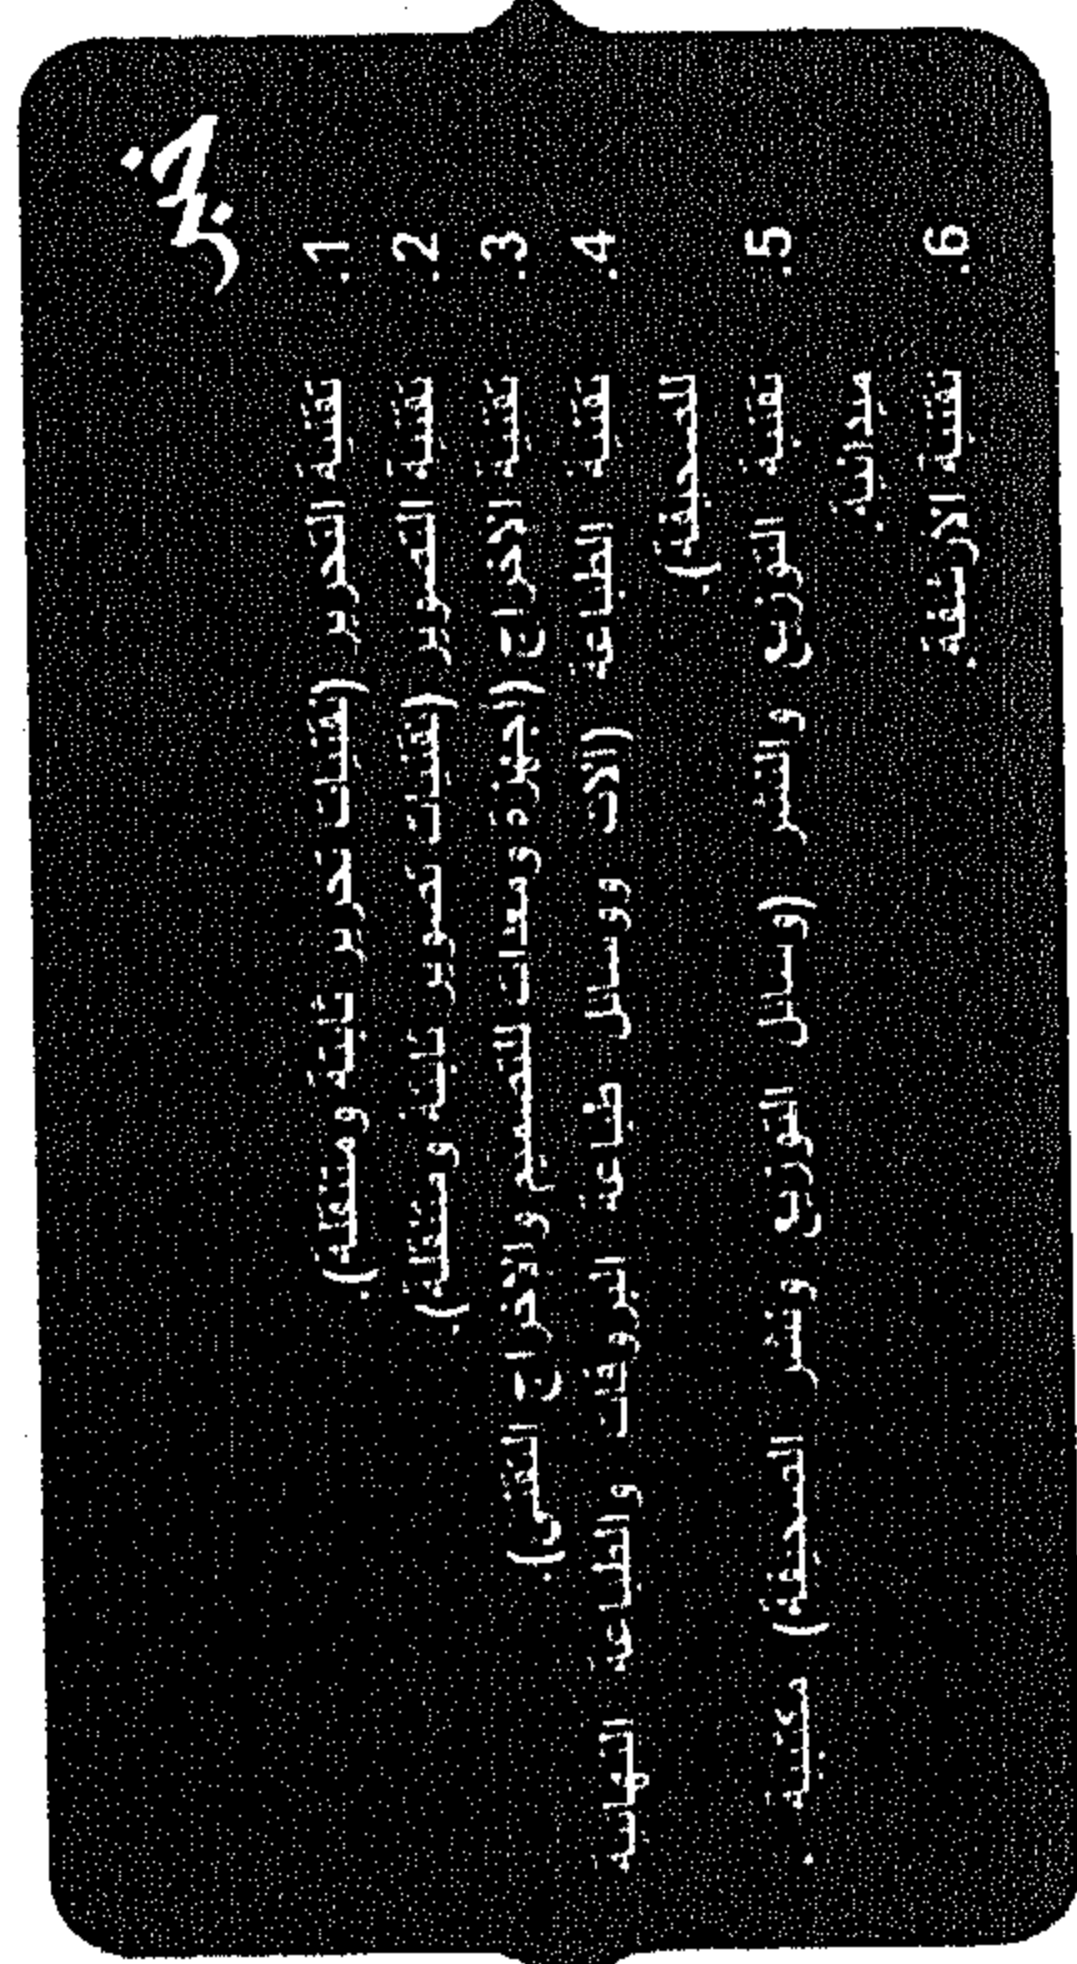 1. تقنية التحرير (تقنيات تحرير ثابتة ومتنقلة).
2. تقنية التصوير (تقنيات تصوير ثابتة ومتنقلة).
3. تقنية الاخراج (اجهزة ومعدات للتصميم والاخراج التقني).
4. تقنية الطباعة (الات ووسائل طباعة البروفات والطباعة النهائية
للصحيفة).
5. تقنية التوزيع والنشر (وسائل التوزيع ونشر الصحيفة) مكتبية .
ميدانية.
6. تقنية الارشفة.